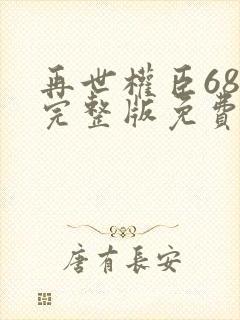 再世權臣68
完整版免費
唐有長安